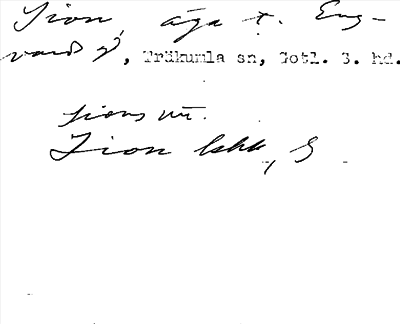 Sion, äga t. Eng-
vards G, Träkumla sn, Gotl. S. hd.
sions un.
Sion lshk, G